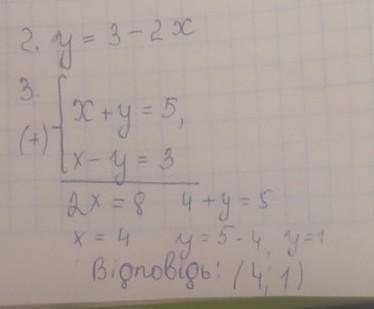 2. y = 3 - 2x
3. { x + y = 5,
(+) x - y = 3
2x = 8 4 + y = 5
x = 4 y = 5 - 4, y = 1
Відповідь: (4; 1)